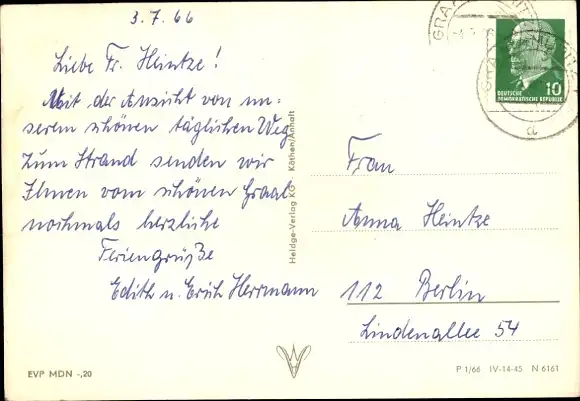 3.7.66
Liebe Fr. Heintze!
Mit der Ansicht von un-
serem schönen täglichen Weg
zum Strand senden wir
Ihnen vom schönen Graal
nochmals herzliche
Feriengrüße
Edith u. Erich Herrmann
Heldge-Verlag KG Köthen/Anhalt
GRAAL-MÜRITZ
a
DEUTSCHE
DEMOKRATISCHE REPUBLIK
10
Frau
Anna Heintze
112 Berlin
Lindenallee 54
EVP MDN -,20
P 1/66 IV-14-45 N 6161